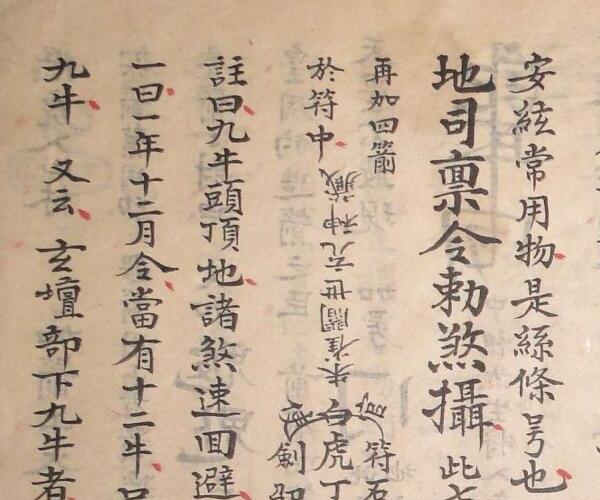 安絃常用物是絲條号也
地司禀令勅煞攝此
再加四箭
於符中
符石
白虎丁
劍
註曰九牛頭頂地諸煞速回避
一曰一年十二月令當有十二牛
九牛又云玄壇部下九牛者